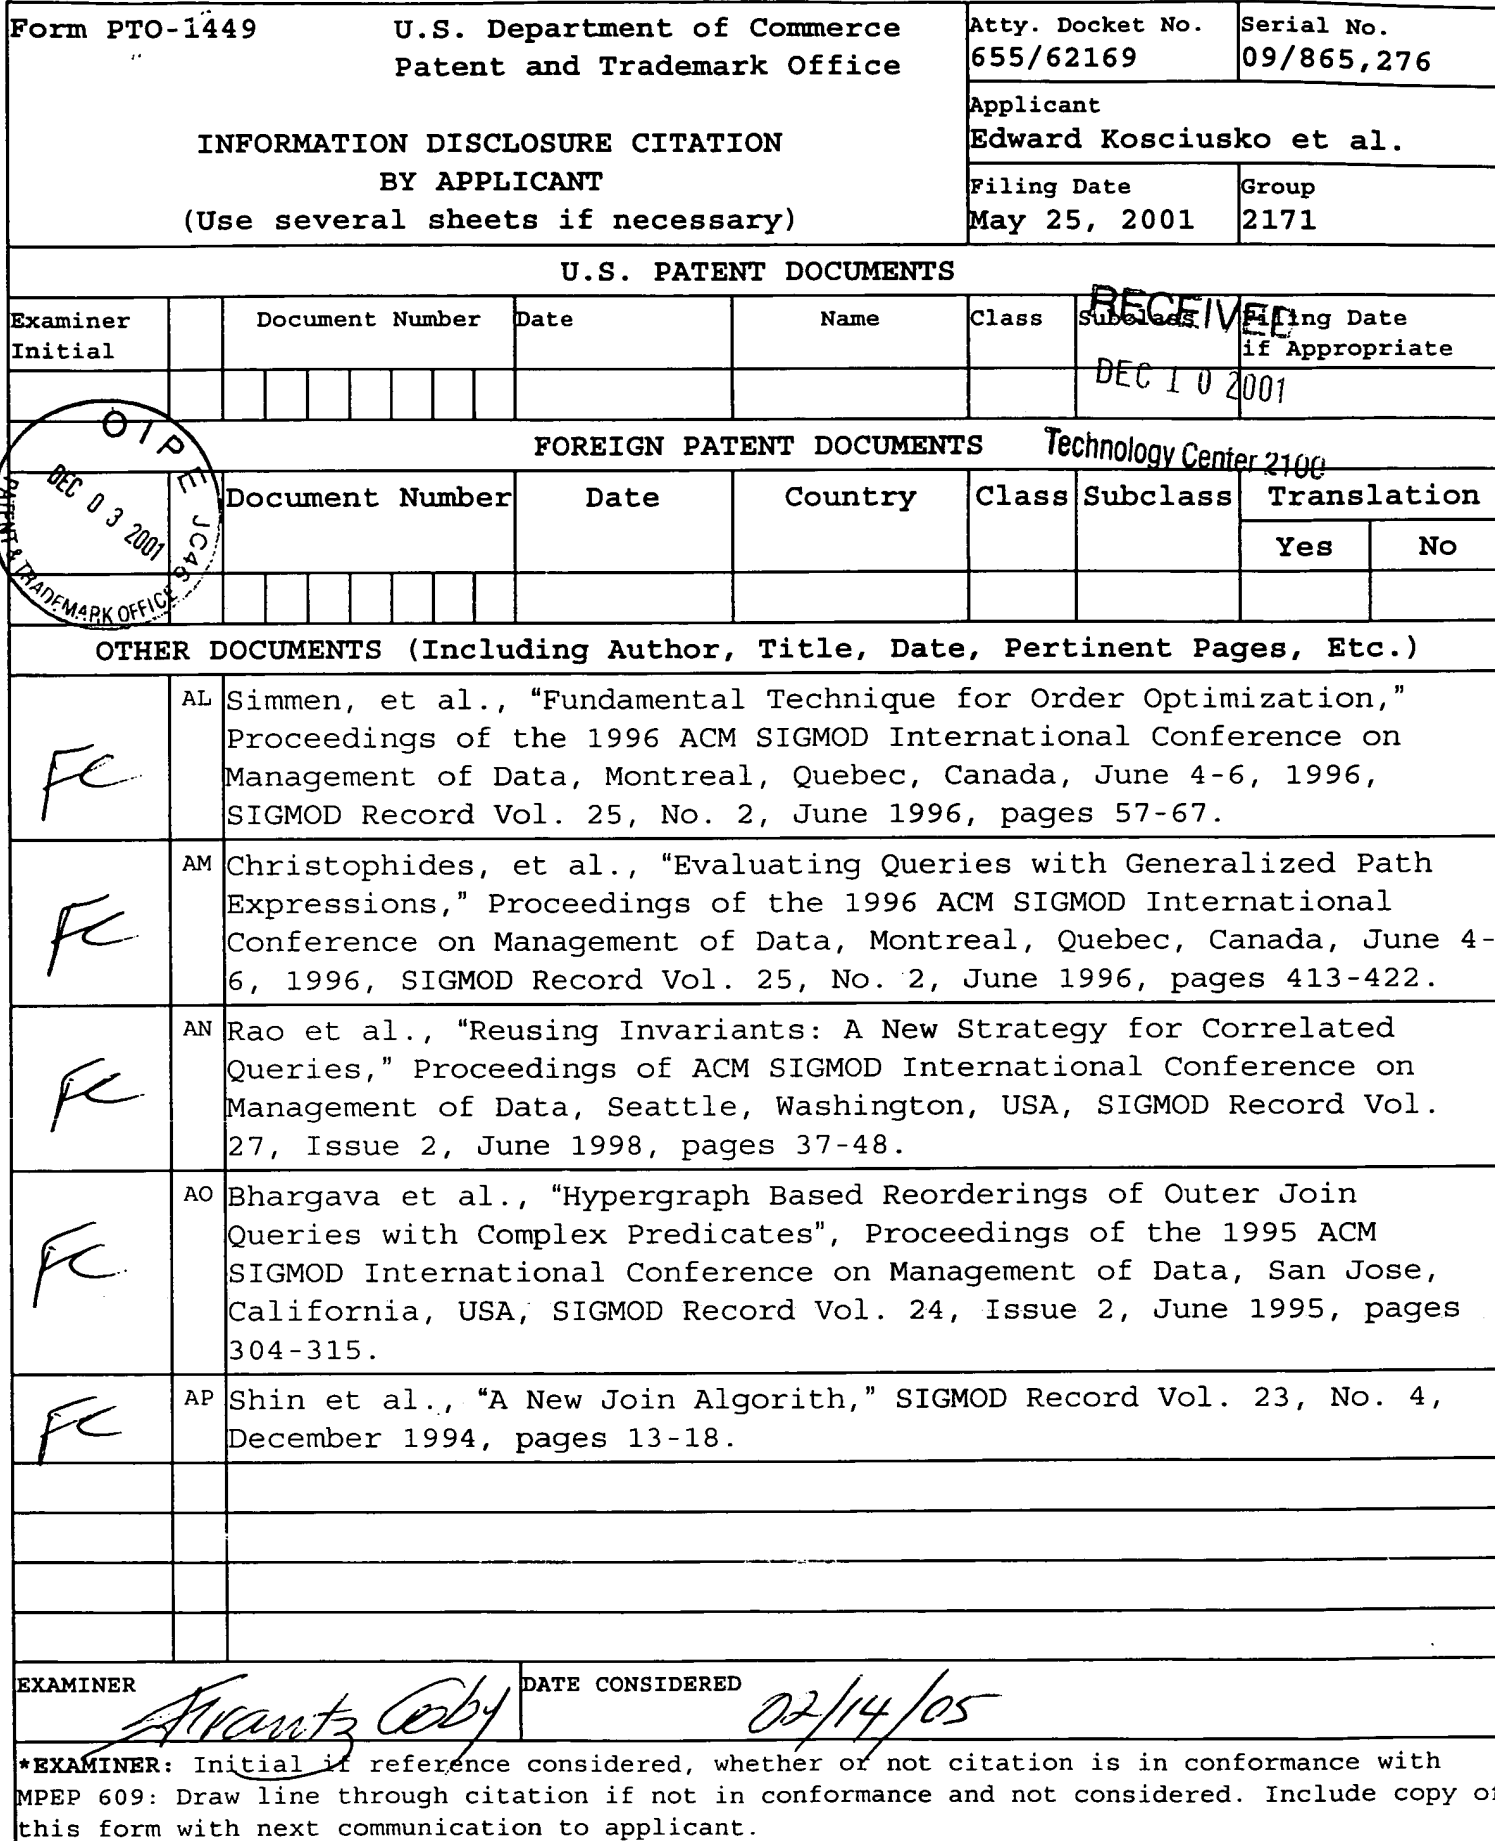 Form PTO-1449
U.S. Department of Commerce
Patent and Trademark Office
INFORMATION DISCLOSURE CITATION
BY APPLICANT
(Use several sheets if necessary)
Atty. Docket No.
655/62169
Serial No.
09/865,276
Applicant
Edward Kosciusko et al.
Filing Date
May 25, 2001
Group
2171
U.S. PATENT DOCUMENTS
RECEIVED
Examiner
Initial
Document Number
Date
Name
Class
Subclass
Filing Date
if Appropriate
DEC 10 2001
FOREIGN PATENT DOCUMENTS
Technology Center 2100
OIPE JC46
DEC 03 2001
PATENT & TRADEMARK OFFICE
Document Number
Date
Country
Class
Subclass
Translation
Yes
No
OTHER DOCUMENTS (Including Author, Title, Date, Pertinent Pages, Etc.)
FC
AL
Simmen, et al., "Fundamental Technique for Order Optimization,"
Proceedings of the 1996 ACM SIGMOD International Conference on
Management of Data, Montreal, Quebec, Canada, June 4-6, 1996,
SIGMOD Record Vol. 25, No. 2, June 1996, pages 57-67.
FC
AM
Christophides, et al., "Evaluating Queries with Generalized Path
Expressions," Proceedings of the 1996 ACM SIGMOD International
Conference on Management of Data, Montreal, Quebec, Canada, June 4-
6, 1996, SIGMOD Record Vol. 25, No. 2, June 1996, pages 413-422.
FC
AN
Rao et al., "Reusing Invariants: A New Strategy for Correlated
Queries," Proceedings of ACM SIGMOD International Conference on
Management of Data, Seattle, Washington, USA, SIGMOD Record Vol.
27, Issue 2, June 1998, pages 37-48.
FC
AO
Bhargava et al., "Hypergraph Based Reorderings of Outer Join
Queries with Complex Predicates", Proceedings of the 1995 ACM
SIGMOD International Conference on Management of Data, San Jose,
California, USA, SIGMOD Record Vol. 24, Issue 2, June 1995, pages
304-315.
FC
AP
Shin et al., "A New Join Algorith," SIGMOD Record Vol. 23, No. 4,
December 1994, pages 13-18.
EXAMINER
Frantz Coby
DATE CONSIDERED
02/14/05
*EXAMINER: Initial if reference considered, whether or not citation is in conformance with
MPEP 609: Draw line through citation if not in conformance and not considered. Include copy of
this form with next communication to applicant.